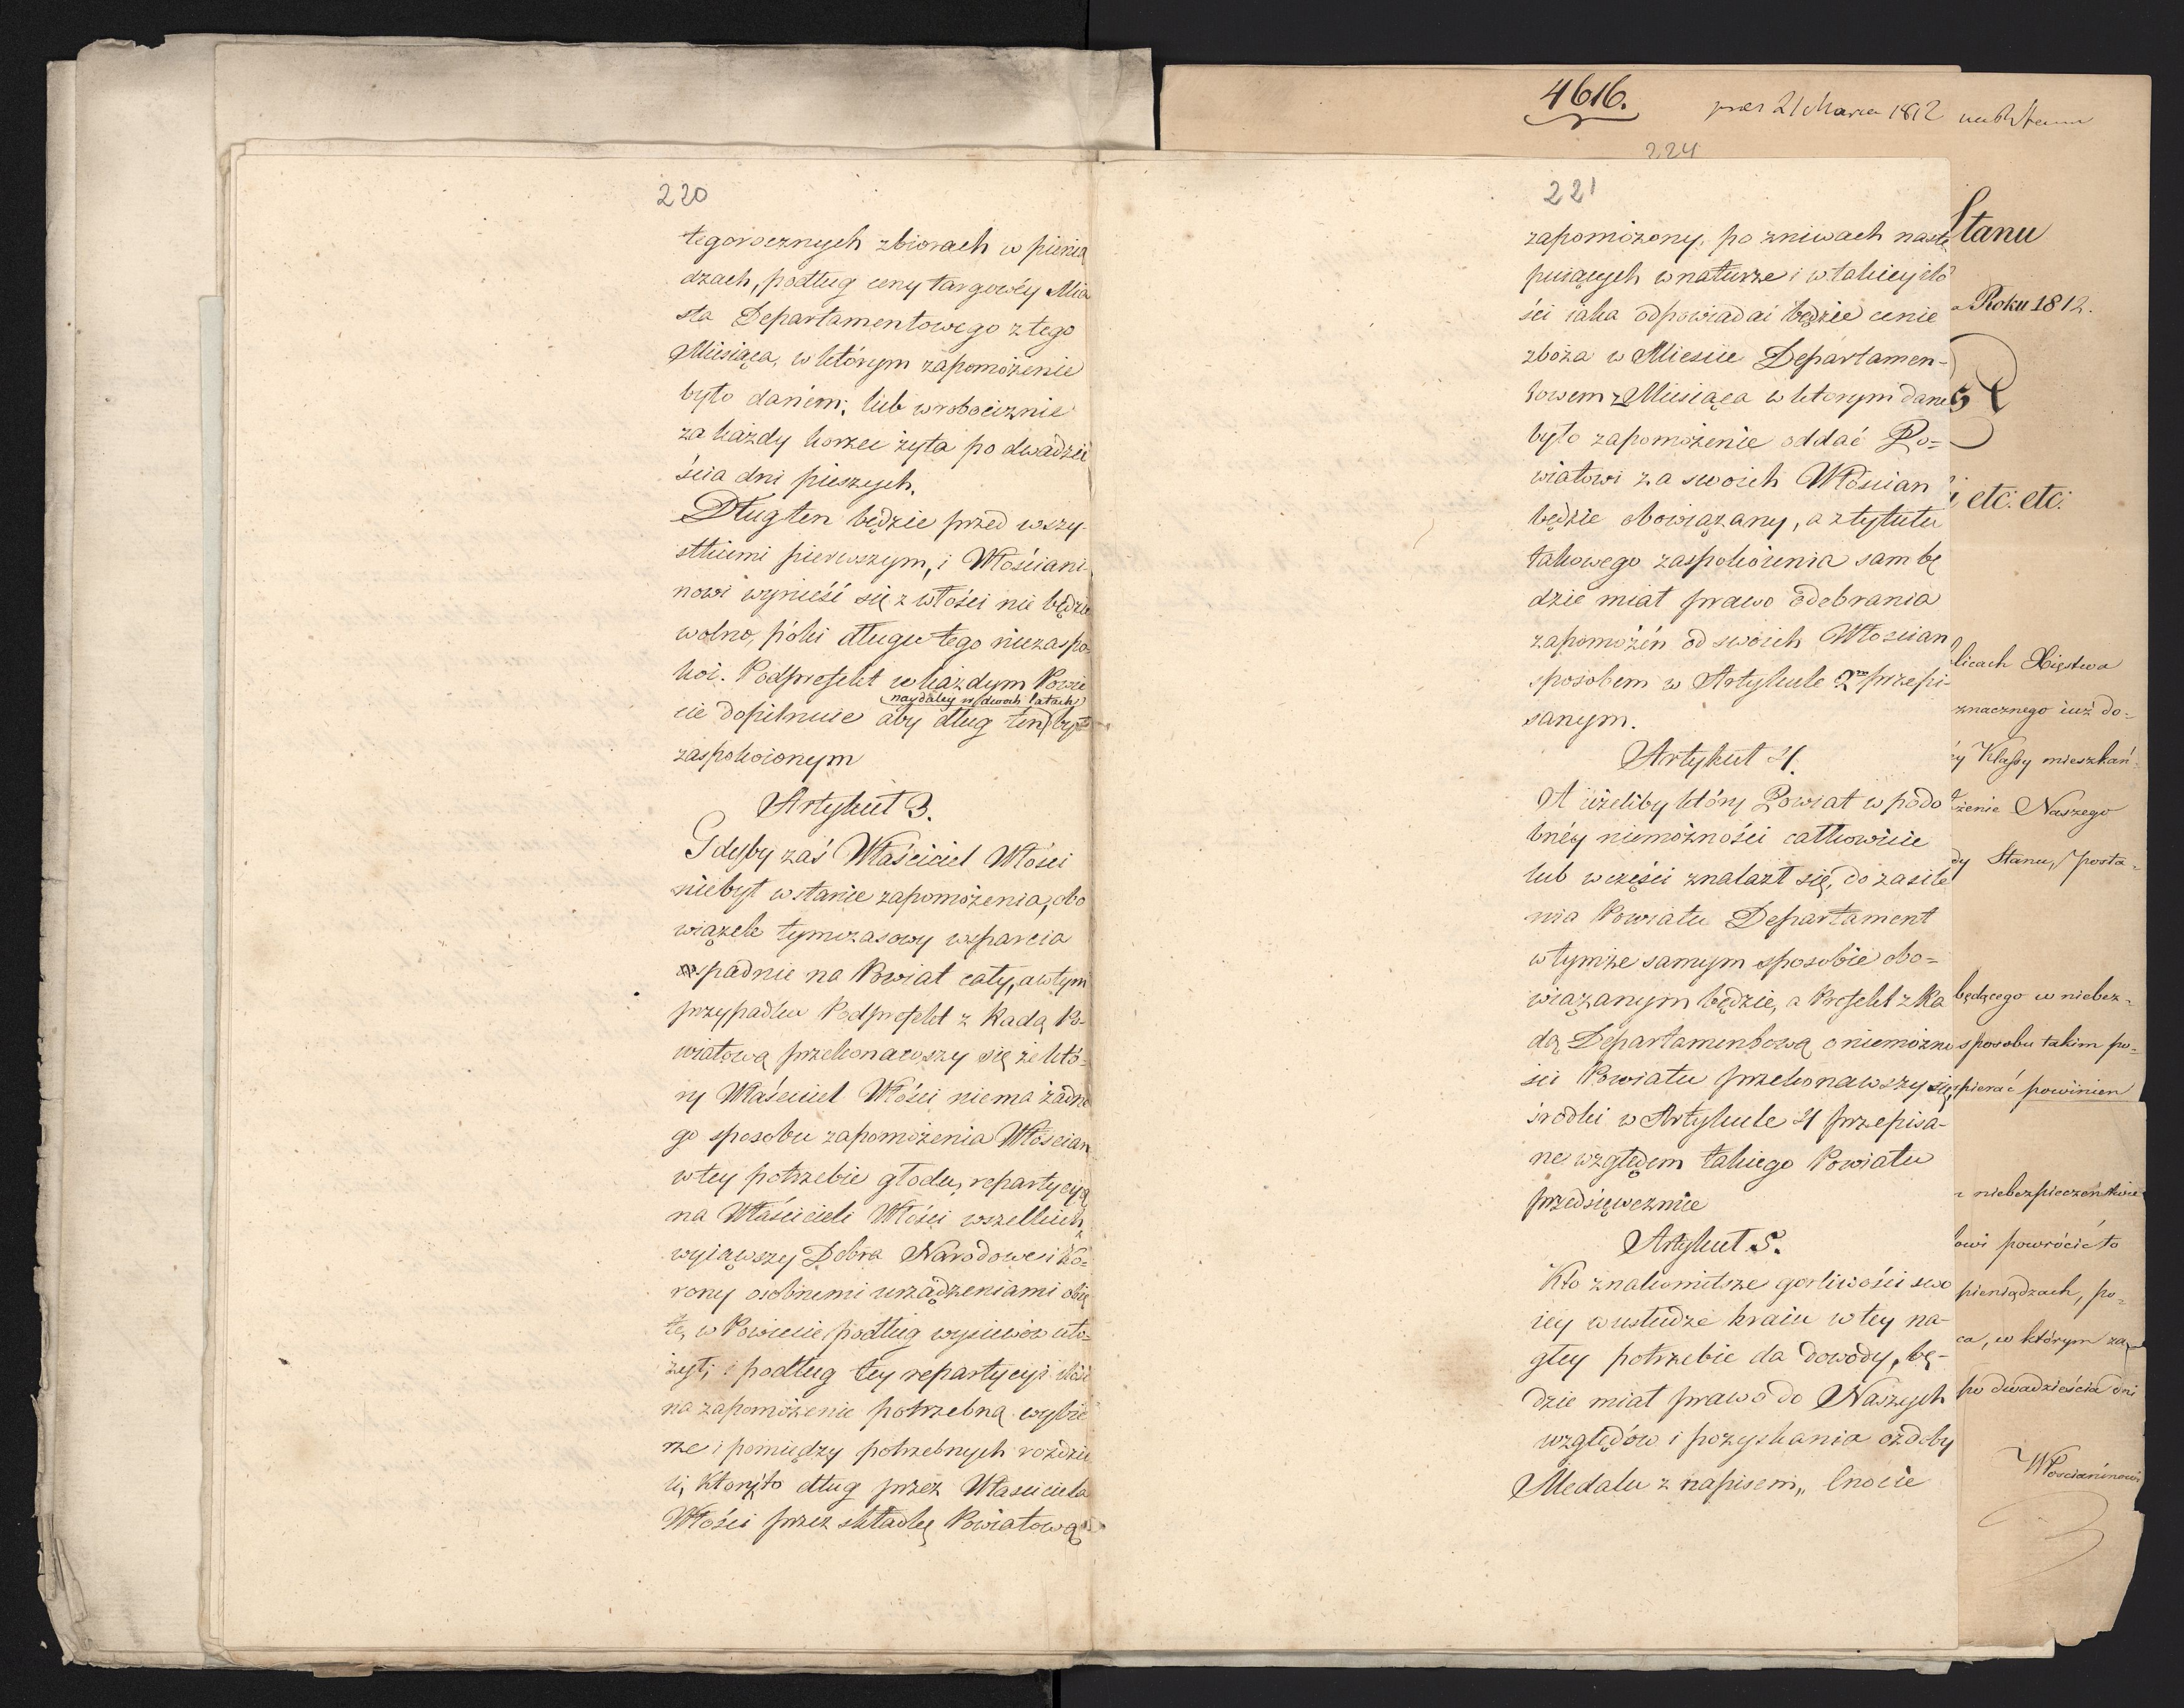 220
tegorocznych zbiorach w pienią
dzach, podług ceny targowéy Mia
sta Departamentowego z tego
Miesiąca, w którym zapomożenie
było daném; lub w robociznie
za każdy korzec żyta po dwadzie
ścia dni pieszych.
Dług ten będzie przed wszy-
stkiemi pierwszym, i Włościani-
nowi wynieść się z włości nie będzie
wolno, póki długu tego niezaspo-
koi. Podprefekt w każdym Powie
naydaley w dwoch latach
cie dopilnuie aby dług ten był
zaspokoionym
Artykuł 3.
Gdyby zaś Właściciel Włości
niebył w stanie zapomożenia, obo
wiązek tymczasowy wsparcia
spadnie na Powiat cały, a w tym
przypadku Podprefekt z Radą Po-
wiatową przekonawszy się że któ-
ry Właściciel Włości niema żadne
go sposobu zapomożenia Włościan
w tey potrzebie głodu, repartycyą
na Właścicieli Włości wszelkich,
wyiąwszy Dobra Narodowe i Ko-
rony osobnemi urządzeniami obię
te, w Powiecie podług wysiewów uło-
ży, i podług tey repartycyi ilość
na zapomożenie potrzebną wybie
rze i pomiędzy potrzebnych rozdzie
li, który to dług przez Właściciela
Włości przez składkę Powiatową
4616.
21 Marca 1812
224
221
zapomożony, po żniwach nastę
puiących w naturze i w takiey ilo
ści iaka odpowiadać będzie cenie
zboża w Mieście Departamen-
towem z Miesiąca w ktorym dane
było zapomożenie oddać Po-
wiatowi za swoich Włościan
będzie obowiązany, a z tytułu
takowego zaspokoienia sam bę
dzie miał prawo odebrania
zapomożeń od swoich Włościan
sposobem w Artykule 2m przepi-
sanym.
Artykuł 4.
A ieżeliby który Powiat w podo
bnéy niemożności całkowicie
lub w części znalazł się, do zasile
nia Powiatu Departament
w tymże samym sposobie obo-
wiązanym będzie, a Prefekt z Ra
dą Departamentową o niemożno
ści Powiatu przekonawszy się,
środki w Artykule 4 przepisa-
ne względem takiego Powiatu
przedsięweźmie
Artykuł 5.
Kto znakomitsze gorliwości swo
iey w usłudze kraiu w tey na-
głey potrzebie da dowody, bę-
dzie miał prawo do Naszych
względów i pozyskania ozdoby
Medalu z napisem „ Cnocie
Stanu
Roku 1812.
etc: etc:
licach Xięstwa
znacznego iuż do-
y Klassy mieszkań-
żenie Naszego
dy Stanu, posta-
będącego w niebez-
sposobu takim po-
spierać powinien
niebezpieczeństwie
owi powrócić to
pieniądzach, po-
ca, w którym za
po dwadzieścia dni
Włościaninowi